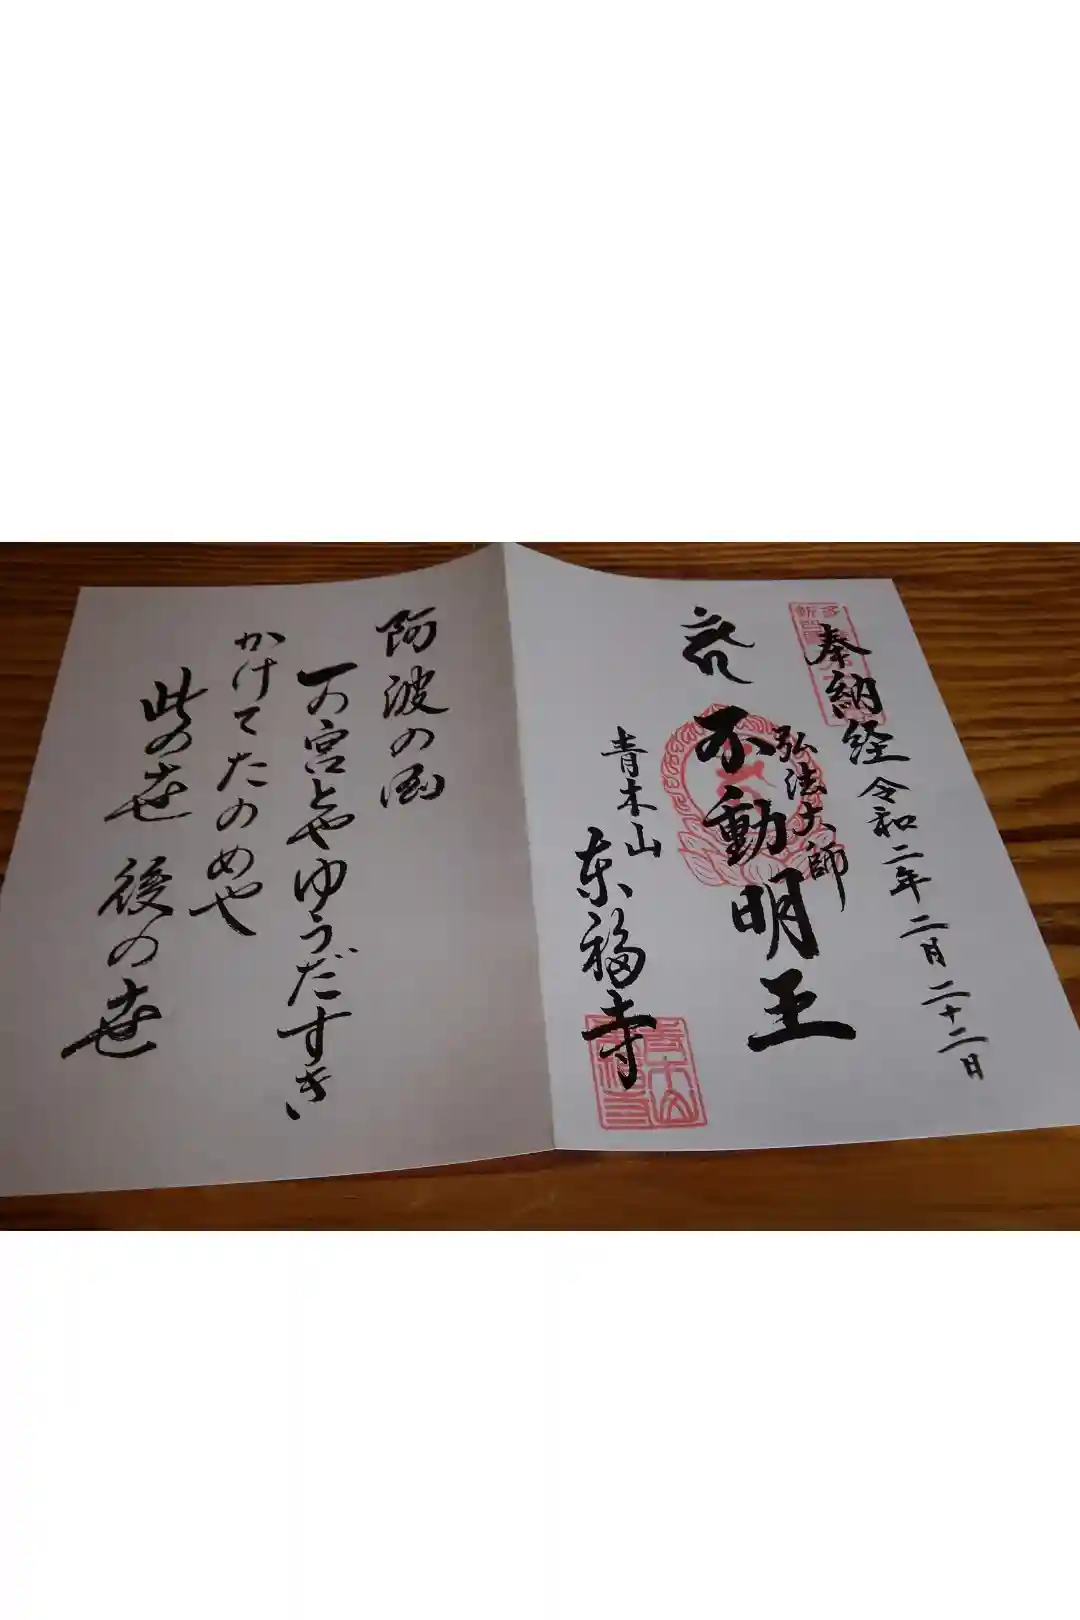 奉納経
令和二年二月二十二日
弘法大師
不動明王
青木山
东福寺
阿波の国
一の宮とやゆうだすき
かけてたのめや
此の世後の世